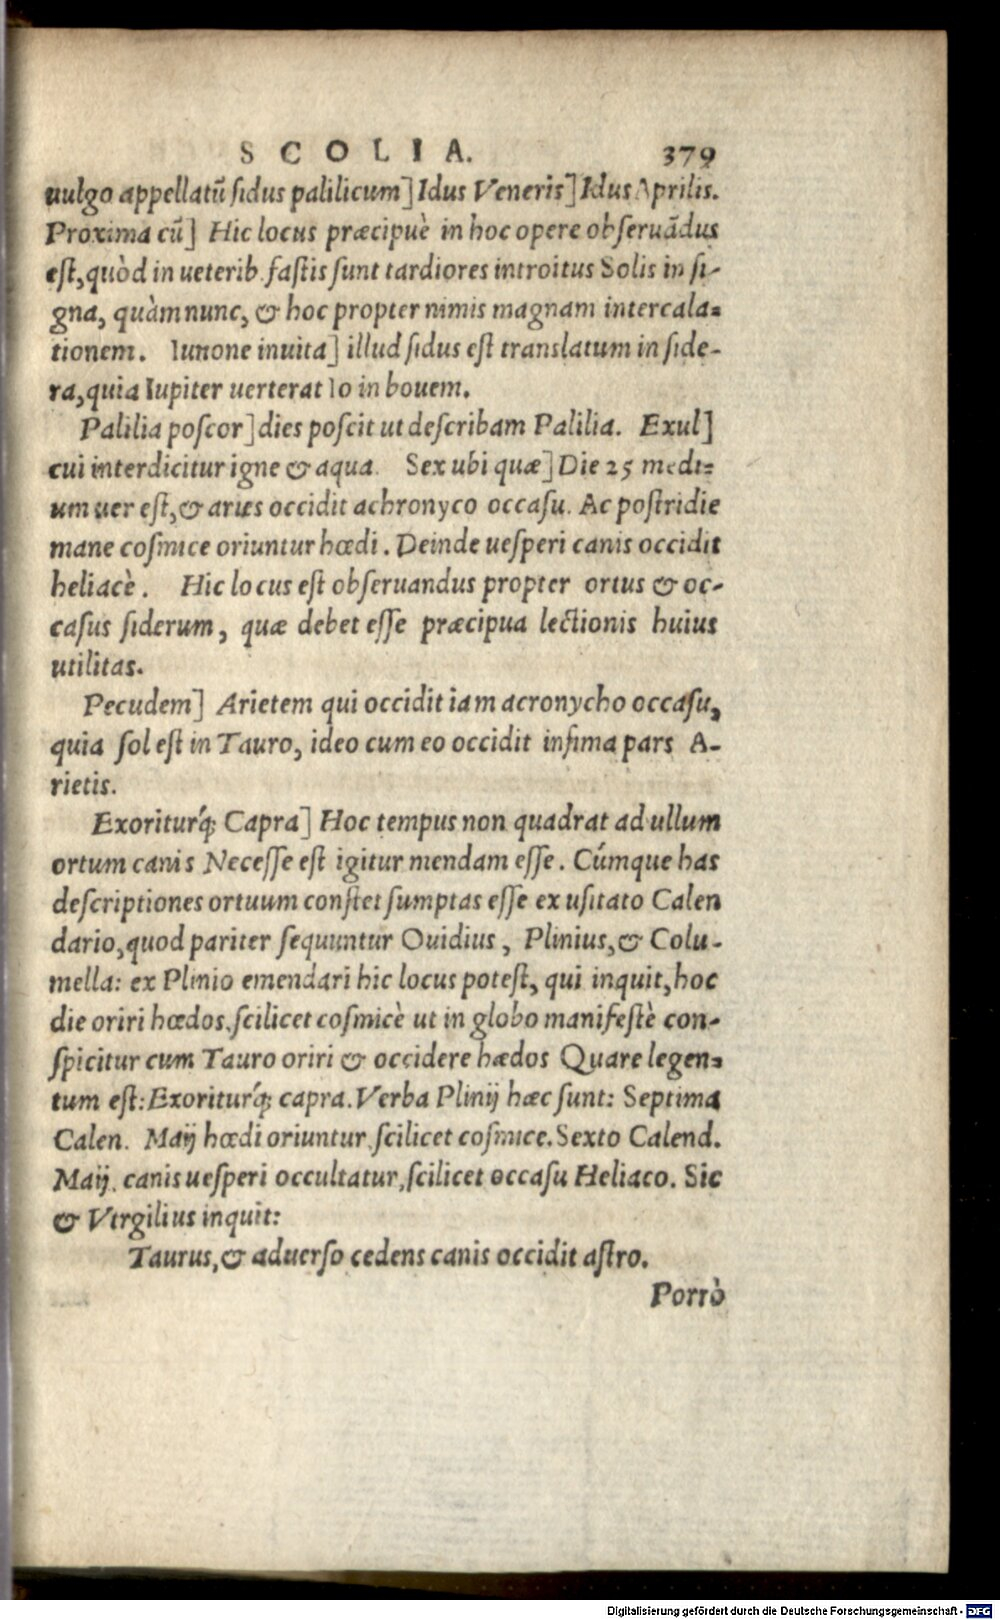 SCOLIA. 379
uulgo appellatū sidus palilicum] Idus Veneris] Idus Aprilis.
Proxima cū] Hic locus præcipuè in hoc opere obseruādus
est, quòd in ueterib. fastis sunt tardiores introitus Solis in si-
gna, quàm nunc, & hoc propter nimis magnam intercala=
tionem. Iunone inuita] illud sidus est translatum in side-
ra, quia Iupiter uerterat Io in bouem.
Palilia poscor] dies poscit ut describam Palilia. Exul]
cui interdicitur igne & aqua. Sex ubi quæ] Die 25 medi=
um uer est, & aries occidit achronyco occasu. Ac postridie
mane cosmice oriuntur hœdi. Deinde uesperi canis occidit
heliacè. Hic locus est obseruandus propter ortus & oc-
casus siderum, quæ debet esse præcipua lectionis huius
utilitas.
Pecudem] Arietem qui occidit iam acronycho occasu,
quia sol est in Tauro, ideo cum eo occidit infima pars A-
rietis.
Exoriturq́; Capra] Hoc tempus non quadrat ad ullum
ortum canis Necesse est igitur mendam esse. Cúmque has
descriptiones ortuum constet sumptas esse ex usitato Calen
dario, quod pariter sequuntur Ouidius, Plinius, & Colu-
mella: ex Plinio emendari hic locus potest, qui inquit, hoc
die oriri hœdos, scilicet cosmicè ut in globo manifestè con-
spicitur cum Tauro oriri & occidere hædos Quare legen=
tum est: Exoriturq́; capra. Verba Plinij hæc sunt: Septima
Calen. Maij hœdi oriuntur, scilicet cosmice. Sexto Calend.
Maij. canis uesperi occultatur, scilicet occasu Heliaco. Sic
& Virgilius inquit:
Taurus, & aduerso cedens canis occidit astro.
Porrò
Digitalisierung gefördert durch die Deutsche Forschungsgemeinschaft - DFG